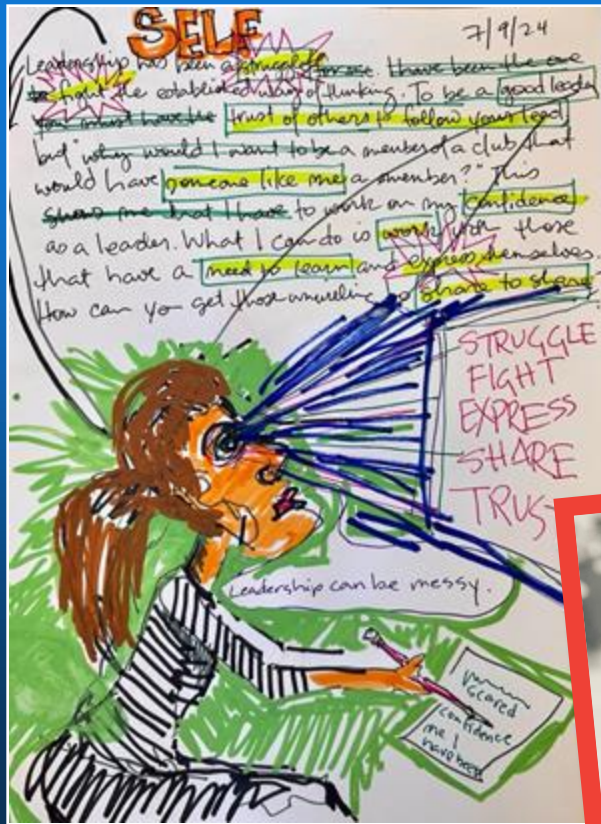 SELF
7/9/24
Leadership has been a struggle for me. I have been the one
to fight the established way of thinking. To be a good leader
you must have the trust of others to follow your lead,
but "why would I want to be a member of a club that
would have someone like me a member?" This
shows me that I have to work on my confidence
as a leader. What I can do is work with those
that have a need to learn and express themselves.
How can you get those unwilling to share to share
STRUGGLE
FIGHT
EXPRESS
SHARE
TRUS
Leadership can be messy.
scared
confidence
me I
have been